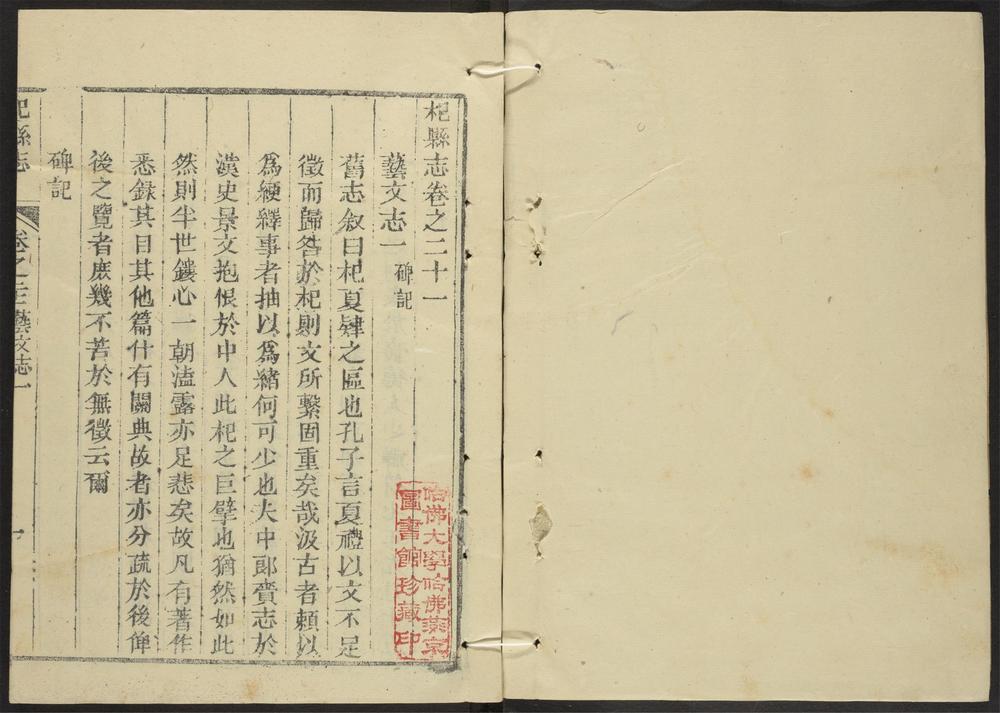 杞縣志卷之二十一
藝文志一 碑記
舊志叙曰杞夏肄之區也孔子言夏禮以文不足
徵而歸咎於杞則文所繫固重矣哉汲古者頼以
爲綆繹事者抽以爲緒何可少也夫中郎賫志於
漢史景文抱恨於中人此杞之巨擘也猶然如此
然則半世鏤心一朝溘露亦足悲矣故凡有著作
悉録其目其他篇什有關典故者亦分疏於後俾
後之覽者庶幾不苦於無徵云爾
碑記
杞縣志 卷之二十一藝文志一 一
哈佛大學哈佛燕京
圖書館珍藏印